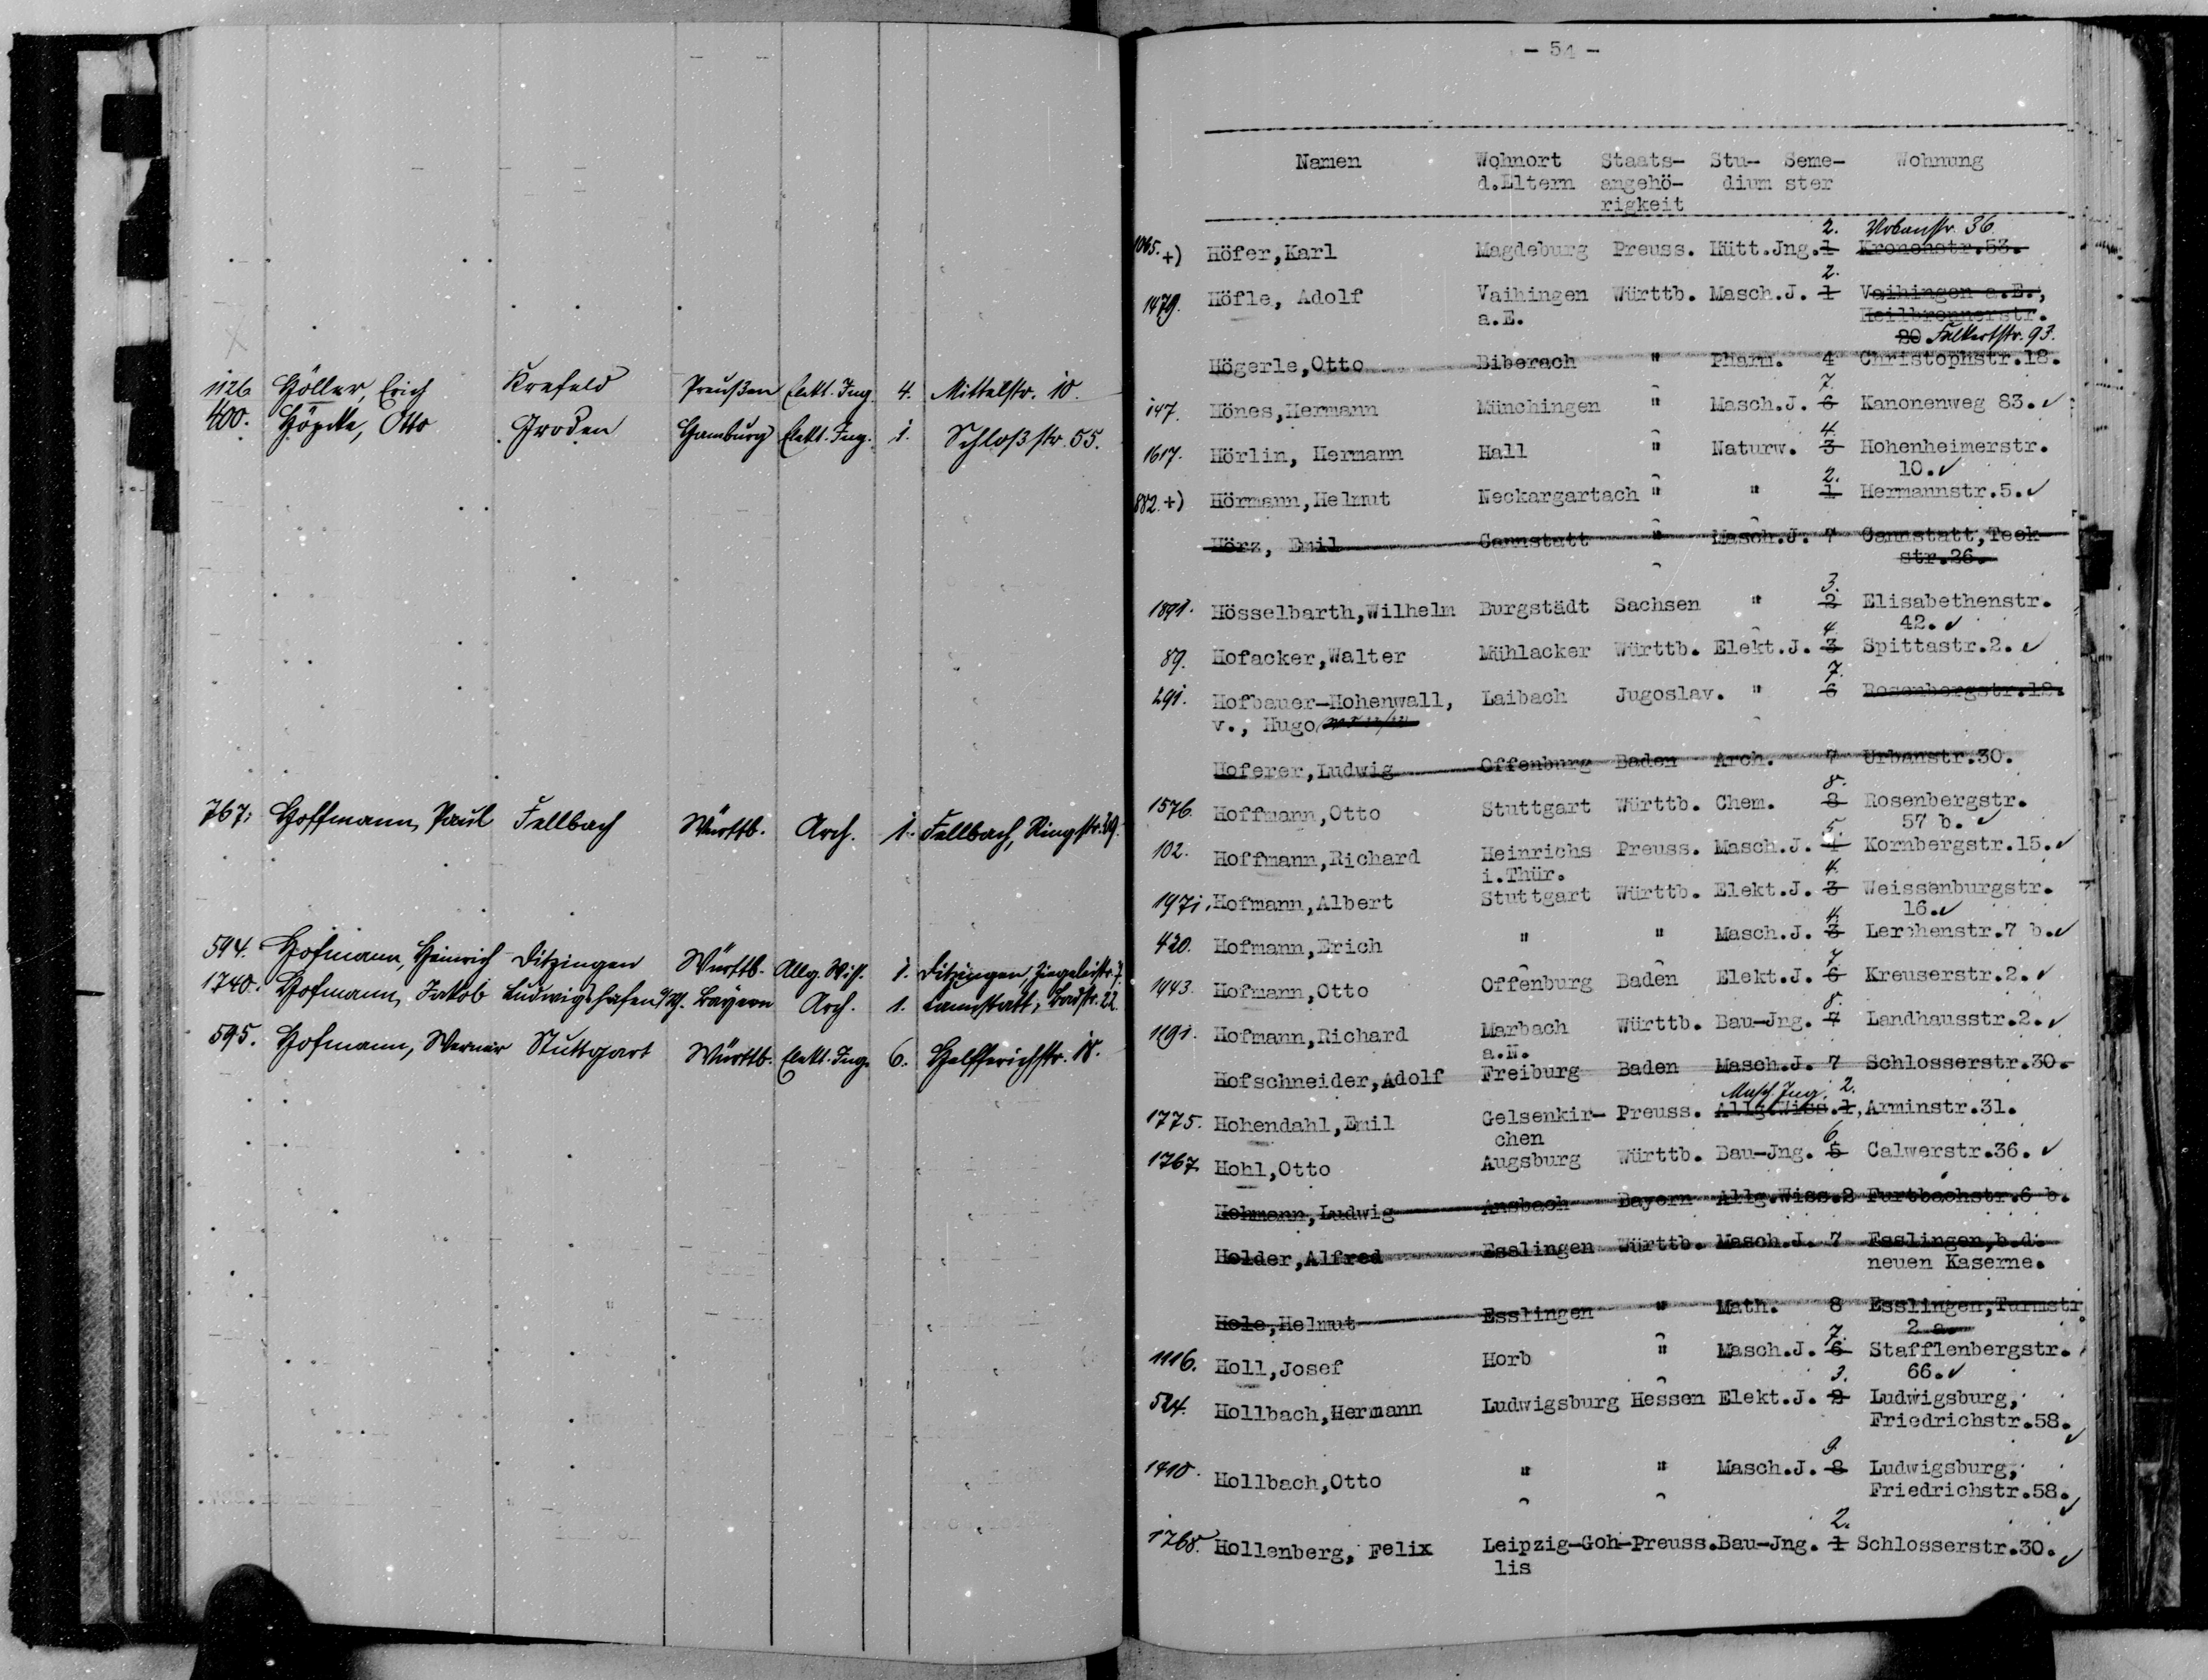 1126 Höller, Erich Krefeld Preußen Elekt. Ing. 4. Mittelstr. 10.
400. Höpcke, Otto Groden Hamburg Elekt. Ing. 1. Schloßstr. 55.
767. Hoffmann, Paul Fellbach Württb. Arch. 1. Fellbach, Ringstr. 29.
594. Hofmann, Heinrich Ditzingen Württb. Allg. Wiss. 1. Ditzingen, Ziegeleistr. 7.
1740. Hofmann, Jakob Ludwigshafen a/Rh. Bayern Arch. 1. Cannstatt, Badstr. 22.
595. Hofmann, Werner Stuttgart Württb. Elekt. Ing. 6. Helfferichstr. 18.
- 54 -
Namen Wohnort Staats- Stu- Seme- Wohnung
d.Eltern angehö- dium ster
rigkeit
2. Urbanstr. 36.
1065. +) Höfer,Karl Magdeburg Preuss. Hütt.Jng. 1 Kronenstr.53.
2.
1479. Höfle, Adolf Vaihingen Württb. Masch.J. 1 Vaihingen a.E.,
a.E. Heilbronnerstr.
20 Falkertstr. 93.
Högerle,Otto Biberach " Pharm. 4 Christophstr.18.
7.
147. Hönes,Hermann Münchingen " Masch.J. 6 Kanonenweg 83. ✓
4.
1617. Hörlin, Hermann Hall " Naturw. 3 Hohenheimerstr.
10. ✓
2.
882. +) Hörmann,Helmut Neckargartach " " 1 Hermannstr.5. ✓
Hörz, Emil Cannstatt " Masch.J. 7 Cannstatt,Teck-
str.26.
3.
1891. Hösselbarth,Wilhelm Burgstädt Sachsen " 2 Elisabethenstr.
42. ✓
4.
89. Hofacker,Walter Mühlacker Württb. Elekt.J. 3 Spittastr.2. ✓
7.
291. Hofbauer-Hohenwall, Laibach Jugoslav. " 6 Rosenbergstr.18.
v., Hugo
Hoferer,Ludwig Offenburg Baden Arch. 7 Urbanstr.30.
8.
1576. Hoffmann,Otto Stuttgart Württb. Chem. 8 Rosenbergstr.
57 b. ✓
5.
102. Hoffmann,Richard Heinrichs Preuss. Masch.J. 4 Kornbergstr.15. ✓
i.Thür.
4.
1971. Hofmann,Albert Stuttgart Württb. Elekt.J. 3 Weissenburgstr.
16. ✓
4.
420. Hofmann,Erich " " Masch.J. 3 Lerchenstr.7 b. ✓
7
1443. Hofmann,Otto Offenburg Baden Elekt.J. 6 Kreuserstr.2. ✓
8.
1191. Hofmann,Richard Marbach Württb. Bau-Jng. 7 Landhausstr.2. ✓
a.N.
Hofschneider,Adolf Freiburg Baden Masch.J. 7 Schlosserstr.30.
Masch. Ing. 2.
1775. Hohendahl,Emil Gelsenkir- Preuss. Allg.Wiss.1, Arminstr.31.
chen
6
1767. Hohl,Otto Augsburg Württb. Bau-Jng. 5 Calwerstr.36. ✓
Hohmann,Ludwig Ansbach Bayern Allg.Wiss.2 Furtbachstr.6 b.
Holder,Alfred Esslingen Württb. Masch.J. 7 Esslingen,b.d.
neuen Kaserne.
Hole,Helmut Esslingen " Math. 8 Esslingen,Turmstr.
2 a.
7.
1116. Holl,Josef Horb " Masch.J. 6 Stafflenbergstr.
66. ✓
3.
524. Hollbach,Hermann Ludwigsburg Hessen Elekt.J. 2 Ludwigsburg,
Friedrichstr.58. ✓
9.
1410. Hollbach,Otto " " Masch.J. 8 Ludwigsburg,
Friedrichstr.58. ✓
2.
1768. Hollenberg, Felix Leipzig-Goh- Preuss. Bau-Jng. 1 Schlosserstr.30. ✓
lis